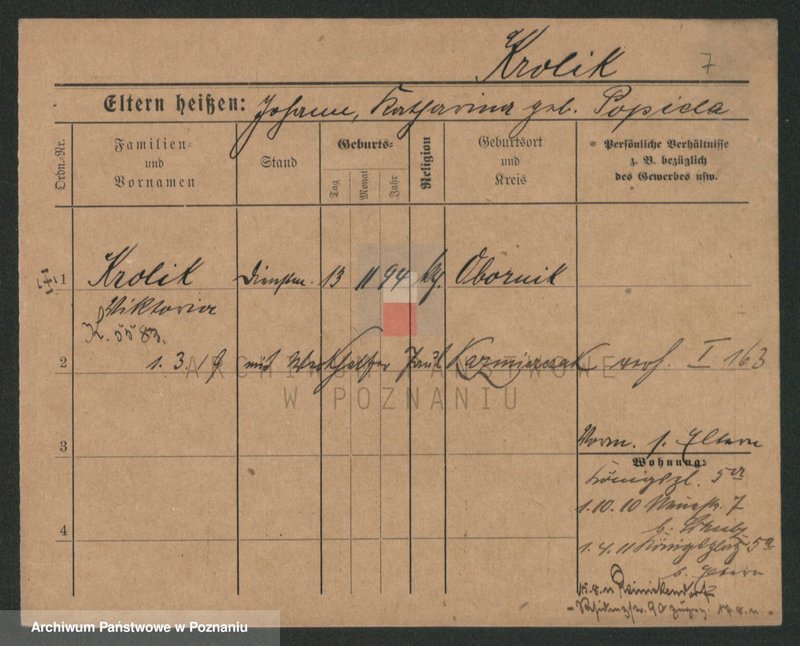 Krolik 7
Eltern heißen: Johann, Katharina geb. Popiela
Ordn.-Nr.
Familien- und Vornamen
Stand
Geburts-
Tag
Monat
Jahr
Religion
Geburtsort und Kreis
Persönliche Verhältnisse z. B. bezüglich des Gewerbes usw.
1 Krolik 13 11 94 Obornik
Viktoria
K. 5583.
2 1. 3. 19 mit Paul Kazmierczak verh. I 163
3
Vorm. s. Eltern
Wohnung:
Königspl. 5
1.10.10 7
4
1.4.11 Königsplatz 5a
b. Eltern
Reinickendorf
ARCHIWUM PAŃSTWOWE
W POZNANIU
Archiwum Państwowe w Poznaniu